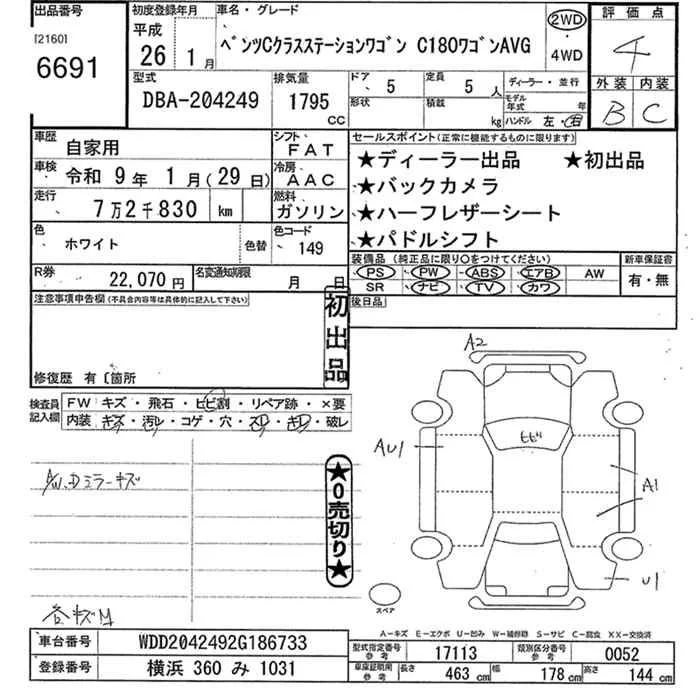 出品番号 初度登録年月 車名・グレード 評価点
[2160] 平成
6691 26年 1月 ﾍﾞﾝﾂCｸﾗｽｽﾃｰｼｮﾝﾜｺﾞﾝ C180ﾜｺﾞﾝAVG 2WD・4WD 4
型式 排気量 ドア 5 定員 5人 ディーラー・並行 外装 内装
DBA-204249 1795 CC 形状 積載 kg モデル年式 年 ハンドル 左・右 B C
車歴 自家用 シフト FAT セールスポイント(正常に機能するものに限ります)
車検 令和 9年 1月(29日) 冷房 AAC ★ディーラー出品 ★初出品
走行 7万2千830 km 燃料 ガソリン ★バックカメラ
★ハーフレザーシート
色 ホワイト 色替 色コード 149 ★パドルシフト
装備品(純正品に限り○をつけてください) 新車保証書
R券 22,070円 名変通知期限 月 日 PS PW ABS エアB AW 有・無
SR ナビ TV カワ
注意事項申告欄(不具合内容等は具体的に記入して下さい) 後日品
初出品
修復歴 有〔箇所
検査員記入欄 FW キズ・飛石・ヒビ割・リペア跡・×要
内装・キズ・汚レ・コゲ・穴・スレ・キレ・破レ
A2
ヒビ
AU1
A1
U1
AW.Dミラーキズ
★0売切り★
各キズM
スペア
A-キズ E-エクボ U-凹み W-補修跡 S-サビ C-腐食 XX-交換済
車台番号 WDD2042492G186733 型式指定番号 参考 17113 類別区分番号 参考 0052
登録番号 横浜 360 み 1031 車庫証明用 参考 長さ 463 cm 幅 178 cm 高さ 144 cm